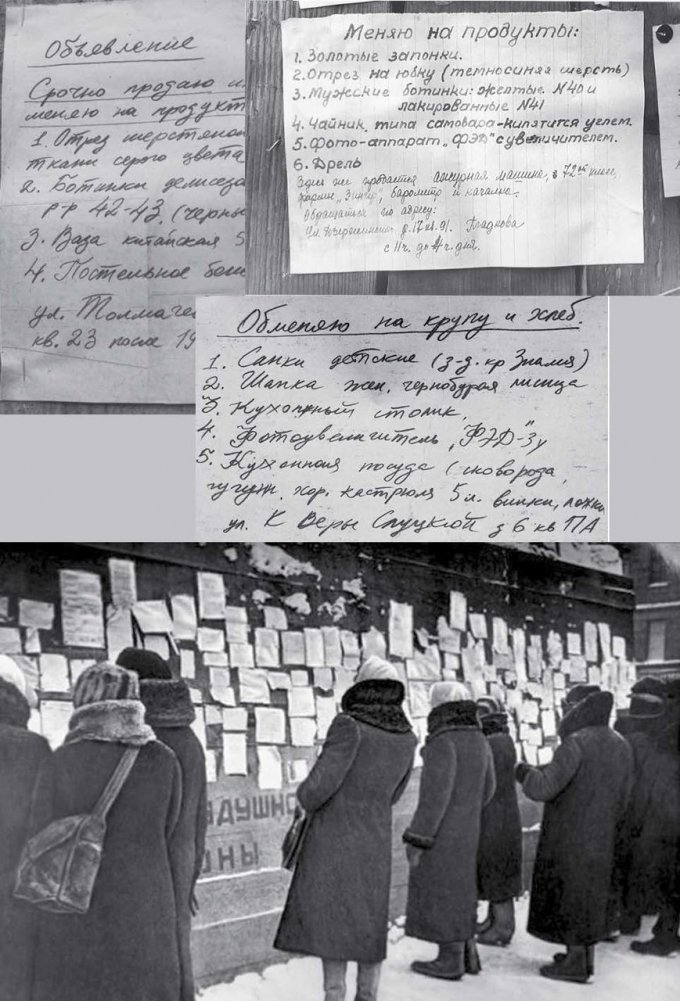 Объявление
Срочно продаю и
меняю на продукт
1. Отрез шерстяной
ткани серого цвета
2. Ботинки демисезо
р-р 42-43. (черны
3. Ваза китайская 5
4. Постельное бель
ул. Толмаче
кв. 23 после 19
Меняю на продукты:
1. Золотые запонки.
2. Отрез на юбку (темносиняя шерсть)
3. Мужские ботинки: желтые N40 и
лакированные N41
4. Чайник типа самовара-кипятится углем.
5. Фото-аппарат "ФЭД" с увеличителем.
6. Дрель
Здесь же продается ажурная машина, в 72
"Зингер", барометр и качалка.
Обращаться по адресу:
Ул. Дзержинского д. 17 кв. 91.
с 11 ч. до 4 ч. дня.
Обменяю на крупу и хлеб.
1. Санки детские (з-д. кр Знамя)
2. Шапка жен. чернобурая лисица
3. Кухонный столик,
4. Фотоувеличитель "ФЭД"-Зу
5. Кухонная посуда (сковорода,
чугун. хор. кастрюля 5 л. вилки, ложки
ул. К Веры Слуцкой д 6 кв ПА
ДУШНО
НЫ